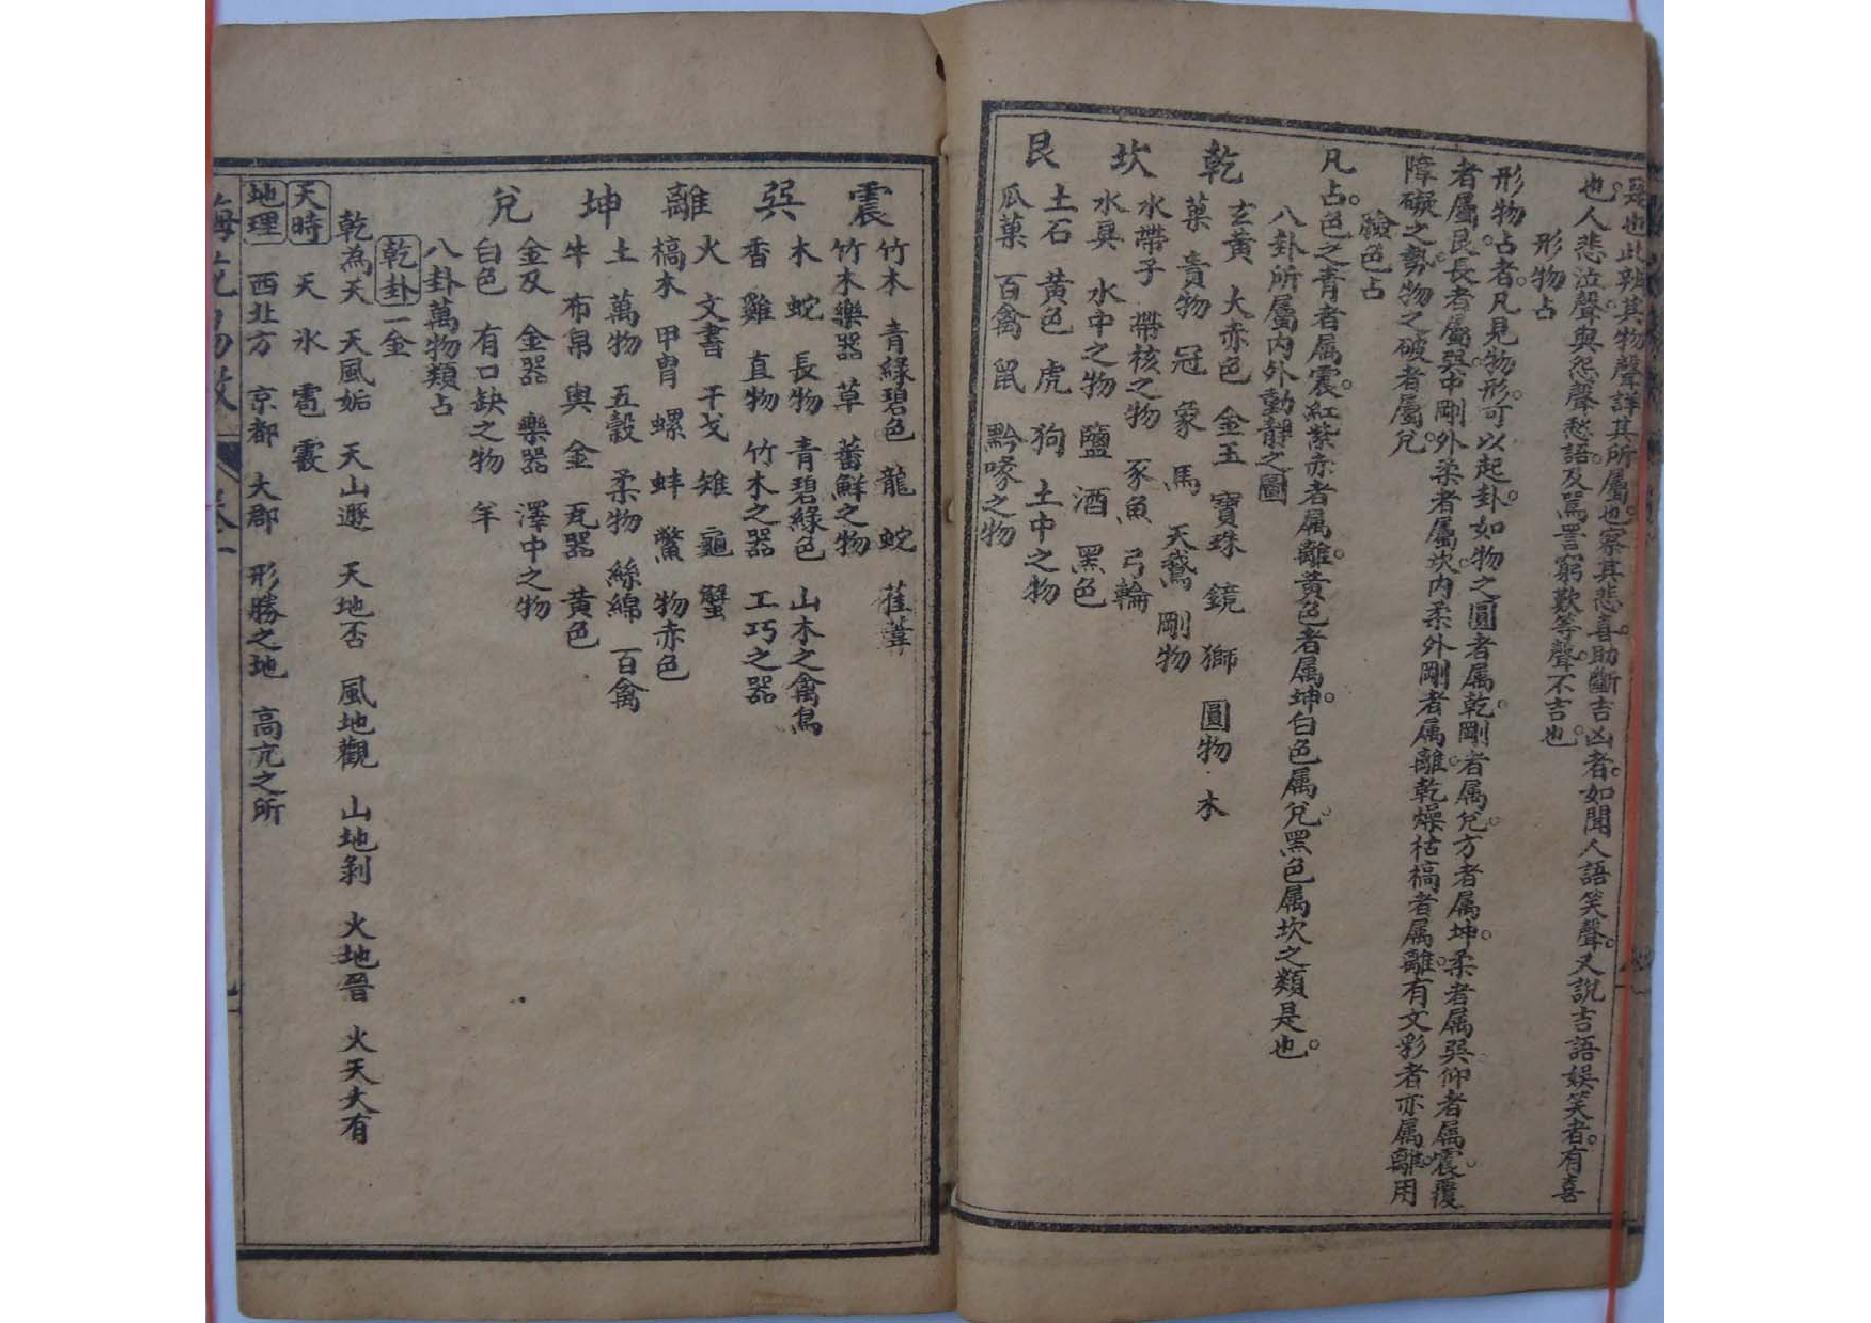 也此辨其物聲詳其所屬也察其悲喜助斷吉凶者如聞人語笑聲又說吉語娛笑者有喜
也人悲泣聲與怨聲愁語及罵詈窮歎等聲不吉也
形物占
形物占者凡見物形可以起卦如物之圓者属乾剛者属兌方者属坤柔者属巽仰者属震覆
者屬艮長者屬巽中剛外柔者屬坎内柔外剛者属離乾燥枯槁者属離有文彩者亦属離用
障礙之勢物之破者屬兌
驗色占
凡占色之青者属震紅紫赤者属離黃色者属坤白色属兌黑色属坎之類是也
八卦所屬内外動静之圖
乾 玄黃 大赤色 金玉 寶珠 鏡 獅 圓物 木
菓 貴物 冠 象 馬 天鵞 剛物
坎 水帶子 帶核之物 豕魚 弓輪
水具 水中之物 鹽 酒 黑色
艮 土石 黃色 虎 狗 土中之物
瓜菓 百禽 鼠 黔喙之物
震 竹木 青緑碧色 龍 蛇 萑葦
竹木樂器 草 蕃鮮之物
巽 木 蛇 長物 青碧緑色 山木之禽鳥
香 雞 直物 竹木之器 工巧之器
離 火 文書 干戈 雉 龜 蟹
槁木 甲冑 螺 蚌 鱉 物赤色
坤 土 萬物 五穀 柔物 絲綿 百禽
牛 布帛 輿 金 瓦器 黃色
兌 金及 金器 樂器 澤中之物
白色 有口缺之物 羊
八卦萬物類占
乾卦一金
乾為天 天風姤 天山遯 天地否 風地觀 山地剝 火地晉 火天大有
天時 天 氷 雹 霰
地理 西北方 京都 大郡 形勝之地 高亢之所